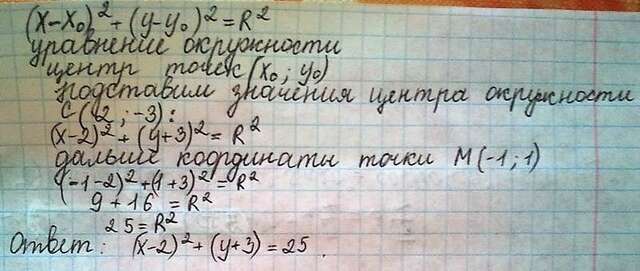 (x-x₀)²+(y-y₀)²=R²
уравнение окружности
центр точек (x₀; y₀)
подставим значения центра окружности
С(2; -3):
(x-2)²+(y+3)²=R²
дальше координаты точки М(-1; 1)
(-1-2)²+(1+3)²=R²
9+16=R²
25=R²
Ответ: (x-2)²+(y+3)=25.